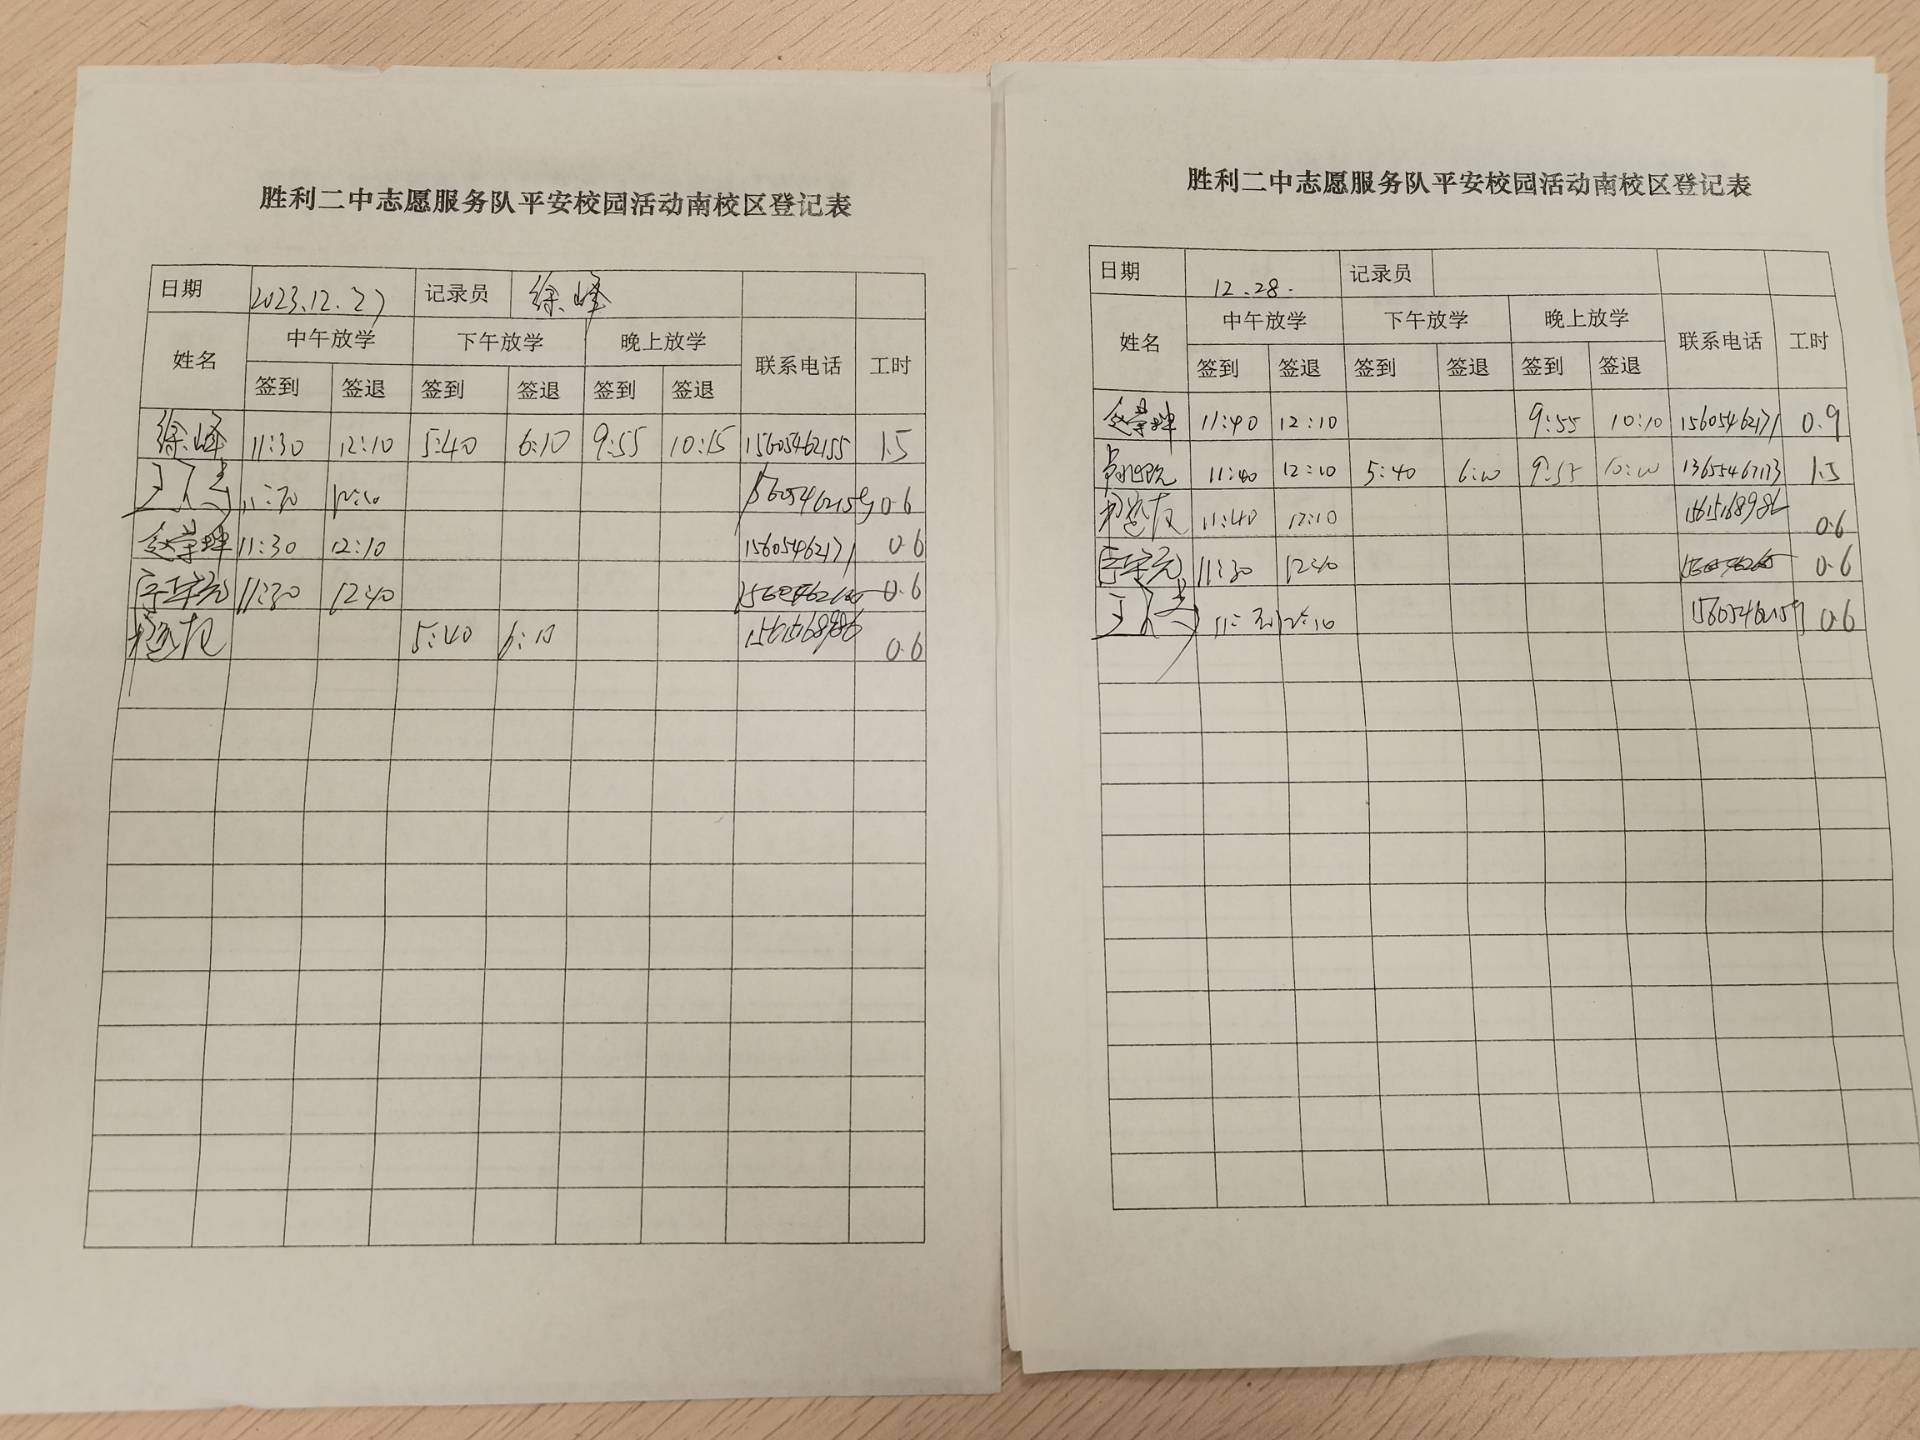 胜利二中志愿服务队平安校园活动南校区登记表
日期 2023.12.27 记录员 徐峰
姓名 中午放学 下午放学 晚上放学 联系电话 工时
签到 签退 签到 签退 签到 签退
徐峰 11:30 12:10 5:40 6:10 9:55 10:15 15605462155 1.5
12:10 15605462159 0.6
11:30 12:10 15605462171 0.6
11:30 12:40 0.6
5:40 6:10 15615168986 0.6
胜利二中志愿服务队平安校园活动南校区登记表
日期 12.28. 记录员
姓名 中午放学 下午放学 晚上放学 联系电话 工时
签到 签退 签到 签退 签到 签退
11:40 12:10 9:55 10:10 15605462171 0.9
11:40 12:10 5:40 6:10 9:55 10:10 1.5
11:40 12:10 15615168986 0.6
11:30 12:40 0.6
12:10 15605462159 0.6